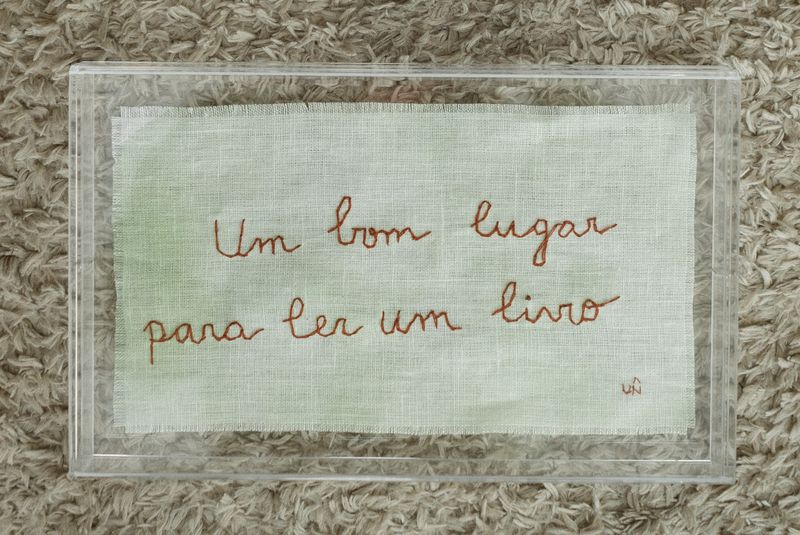 Um bom lugar
para ler um livro